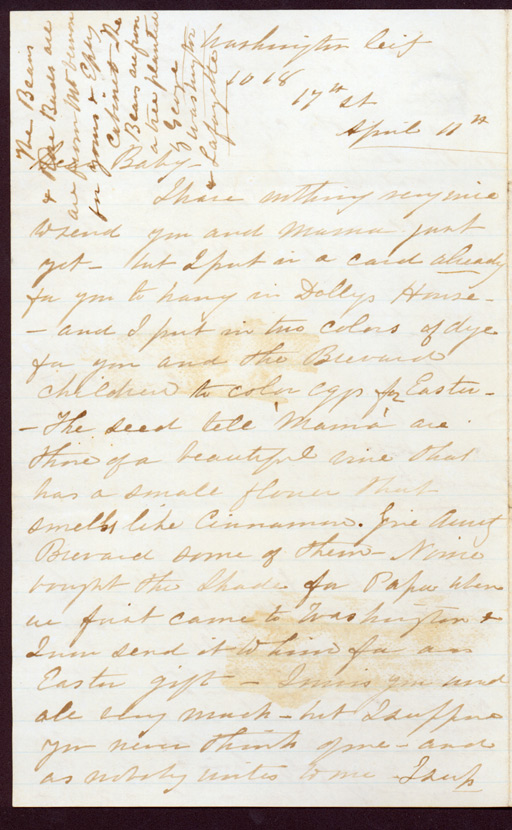 Washington City
1018
17th St
April 11th
Baby -
I have nothing very nice
to send you and Mama just
yet - but I put in a card already
for you to hang in Dollys House -
- and I put in two colors of dye
for you and the Brevard
children to color eggs for Easter -
- The seed tell 'Mama' are
those of a beautiful vine that
has a small flower that
smells like Cinnamon. Give Aunt
Brevard some of them -
bought the Shade for Papa when
we first came to Washington &
I now send it to him for an
Easter gift - I miss you and
all very much - but I suppose
you never think of me - and
as nobody writes to me - I sup
The Beans
& Buds are
are from Mt Vernon
for yours & Effy
Cabinet. The
Beans are from
a tree planted
by George
Washington
& Lafayette